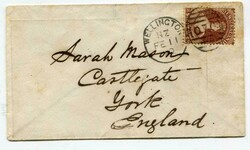 WELLINGTON
NZ
FE 11
Sarah Mason
Castlegate
York
England.